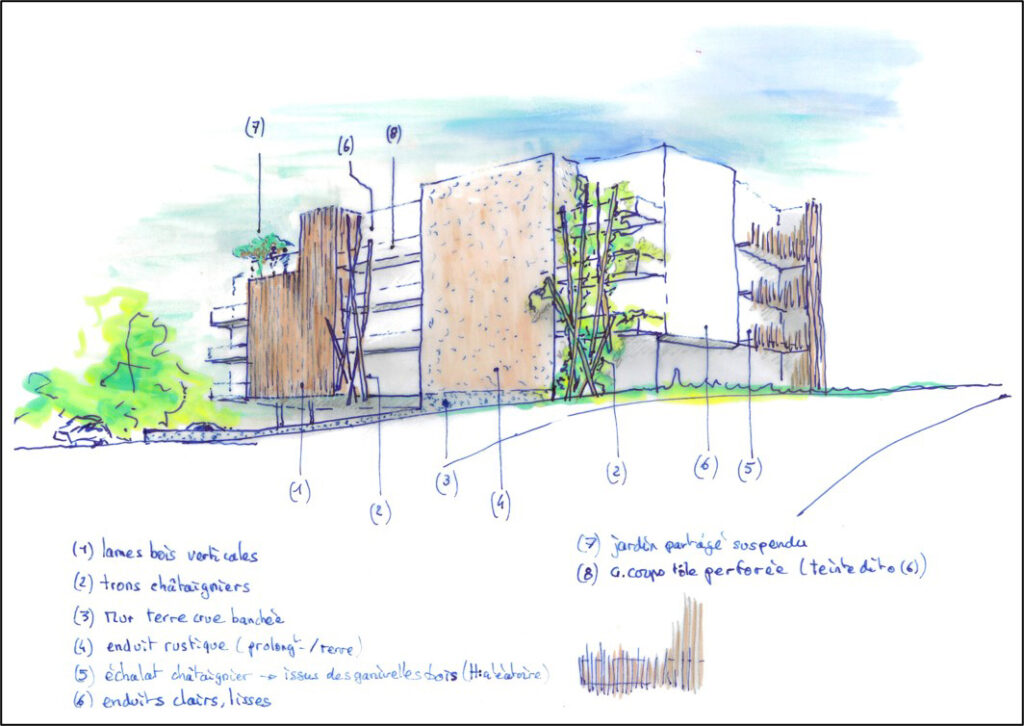 (7)
(6)
(8)
(1)
(2)
(3)
(4)
(2)
(6)
(5)
(1) lames bois verticales
(2) trons châtaigniers
(3) Mur terre crue banchée
(4) enduit rustique (prolongt-/terre)
(5) échalat châtaignier → issus des ganivelles bois (H:aléatoire)
(6) enduits clairs, lisses
(7) jardin partagé suspendu
(8) G.corps tôle perforée (teinte dito (6))